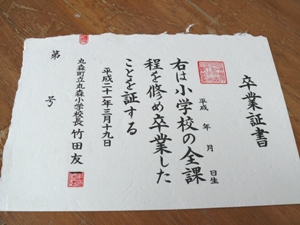 卒業証書
平成 年 月 日生
右は小学校の全課
程を修め卒業した
ことを証する
平成二十一年三月十九日
丸森町立丸森小学校長 竹田友
第 号